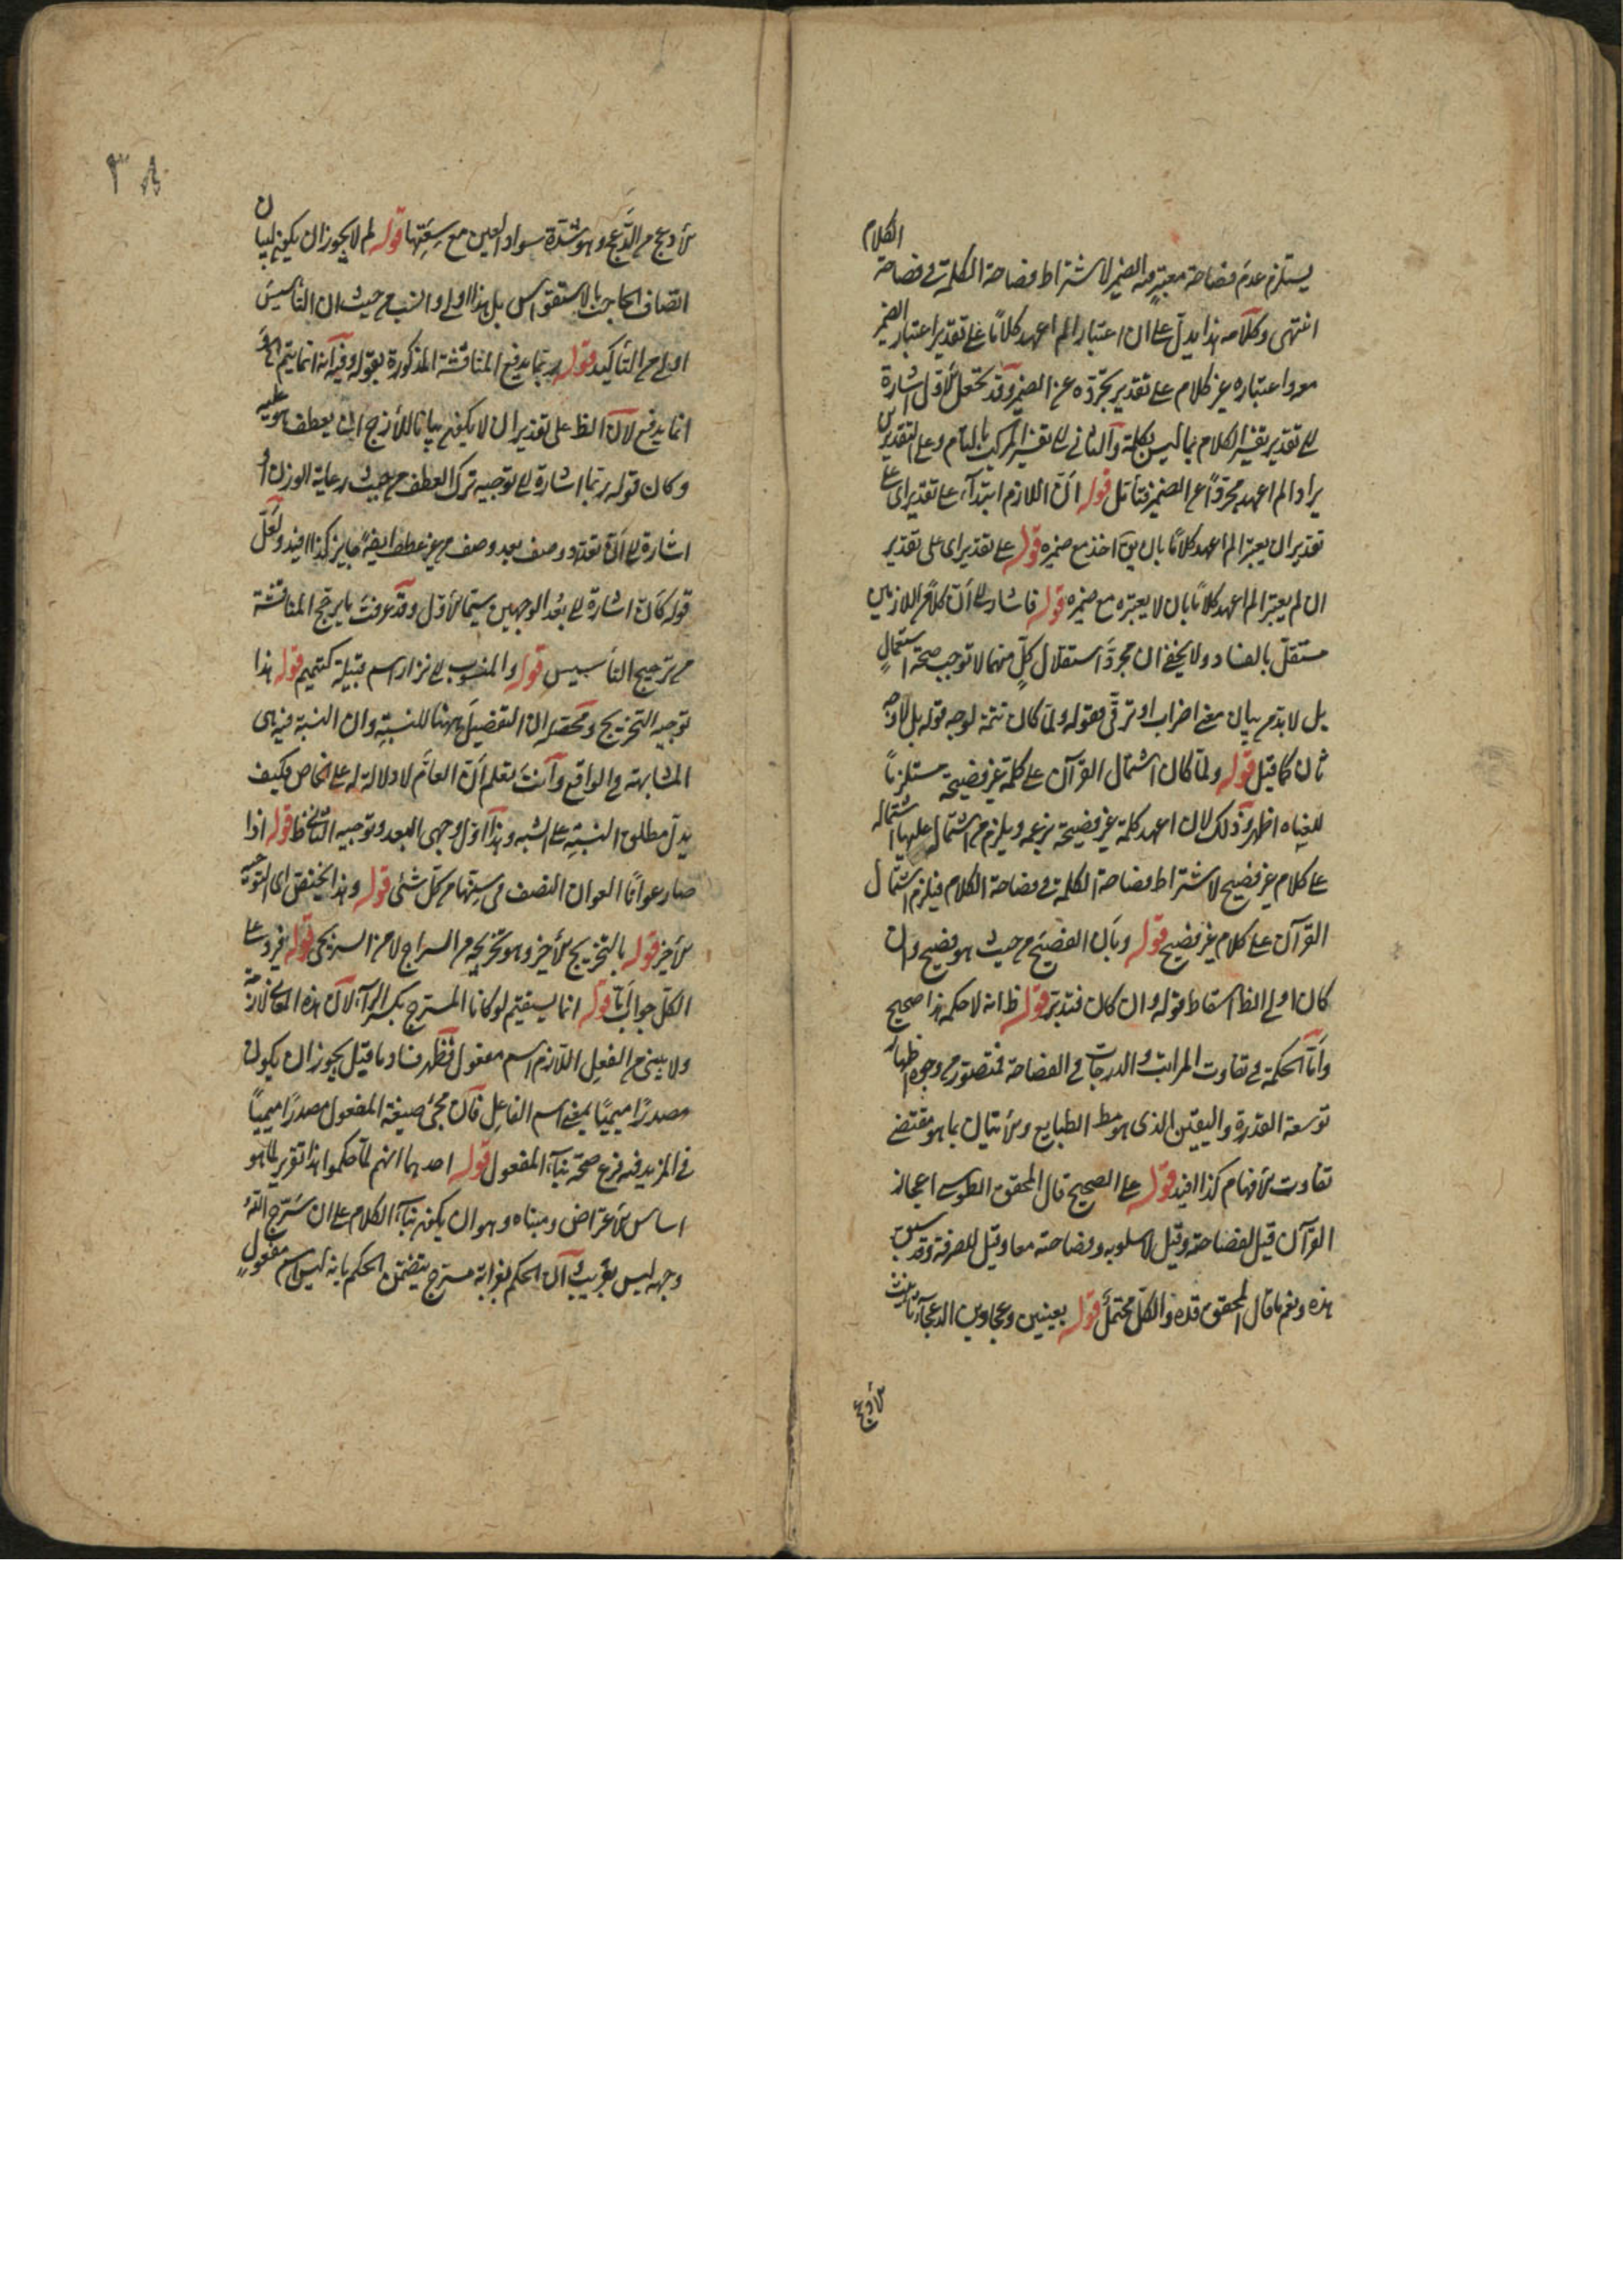 يستلزم عدم فصاحة معتبر فيه الضمير لاشتراط فصاحة الكلمة في فصاحة الكلام
انتهى وكلامه هذا يدل على ان اعتبار الم اعهد كلاما على تقدير اعتبار الضمير
معه واعتباره غير كلام على تقدير تجرده عن الضمير وقد تجعل الاول اشارة
الى تقدير تفسير الكلام بما ليس بكلمة والثاني الى تفسير المركب بالتام وعلى التقديرين
يراد الم اعهد مجردا عن الضمير فتأمل قوله ان اللازم ابتداء على تقدير اى على
تقدير ان يعتبر الم اعهد كلاما بان يق اخذ مع ضميره قوله على تقدير اى على تقدير
ان لم يعتبر الم اعهد كلاما بان لا يعتبره مع ضميره قوله فاشار الى ان كلا من اللازمين
مستقل بالفساد ولا يخفى ان مجرد استقلال كل منهما لا توجب صحة استعمال
بل لا بد من بيان معنى اضراب او ترقى فقوله ولما كان تتمة لوجه قوله بل لا وجه
ثان كما قيل قوله ولما كان اشتمال القرآن على كلمة غير فصيحة مستلزما
للغباه اظهر وذلك لان اعهد كلمة غير فصيحة بزعمه ويلزم من اشتماله عليها اشتماله
على كلام غير فصيح لاشتراط فصاحة الكلمة في فصاحة الكلام فيلزم اشتمال
القرآن على كلام غير فصيح قوله وبان الفصيح من حيث هو فصيح وان
كان اولى الظ اسقاط قوله وان كان فتدبر قوله ظ انه لا حكمه هذا صحيح
واما الحكمة في تفاوت المراتب والدرجات في الفصاحة فمتصور من وجوه اظهار
توسعة القدرة واليقين الذى هو مط الطبايع والأتيان بما هو مقتضى
تفاوت الأفهام كذا افيد قوله على الصحيح قال المحقق الطوسى اعجاز
القرآن قيل لفصاحته وقيل لاسلوبه وفصاحته معا وقيل للصرفة وقد سبق
هذه ونعم ما قال المحقق قده والكل محتمل قوله بعينين وعجاوين الدعجاء تأنيث
الأدعج
٣٨
الأدعج من الدعج وهو شدة سواد العين مع سعتها قوله لم لا يجوز ان يكون لبيان
اتصاف الحاجب بالاستقواس بل هذا اولى وانسب من حيث ان التأسيس
اولى من التأكيد قوله ربما يدفع المناقشة المذكورة بقوله وفيه انه انما يتم
انما يدفع لان الظ على تقدير ان لا يكون بيانا للأزج ان يعطف هو عليه
وكان قوله ربما اشارة الى توجيه ترك العطف من حيث رعاية الوزن او
اشارة الى ان تعدد وصف بعد وصف من غير عطف ايضا جايز كذا افيد ولعل
قوله كان اشارة الى بعد الوجهين سيما الأول وقد عرفت ما يرجح المناقشة
من ترجيح التأسيس قوله والمنسوب الى نزار اسم قبيلة كتميم قوله هذا
توجيه التخريج ومحصله ان التفضيل ههنا للنسبة وان النسبة فيه هى
المشابهة في الواقع وانت تعلم ان العام لا دلالة له على الخاص فكيف
يدل مطلق النسبة على الشبه وهذا اول وجهى البعد وتوجيه الثاني ظ قوله اذا
صار عوانا العوان النصف في سنها من كل شئ قوله وهذا يختص اى التوجيه
الأخير قوله بالتخريج الأخير وهو تخريجه من السراج لا من السريجى قوله فيرد على
الكل جوابا قوله انما يستقيم لو كانا المسرج بكسر الراء لان هذه المعانى لازمة
ولا يبنى من الفعل اللازم اسم مفعول فظهر فساد ما قيل يجوز ان يكون
مصدرا ميميا بمعنى اسم الفاعل فان مجئ صيغة المفعول مصدرا ميميا
في المزيد فيه فرع صحة بناء المفعول قوله احدهما انهم لما حكموا هذا تقرير لما هو
اساس الأعتراض ومبناه وهو ان يكون بناء الكلام على ان سرج الله
وجهه ليس بغريب ان الحكم بغرابة مسرج يتضمن الحكم بانه ليس اسم مفعول